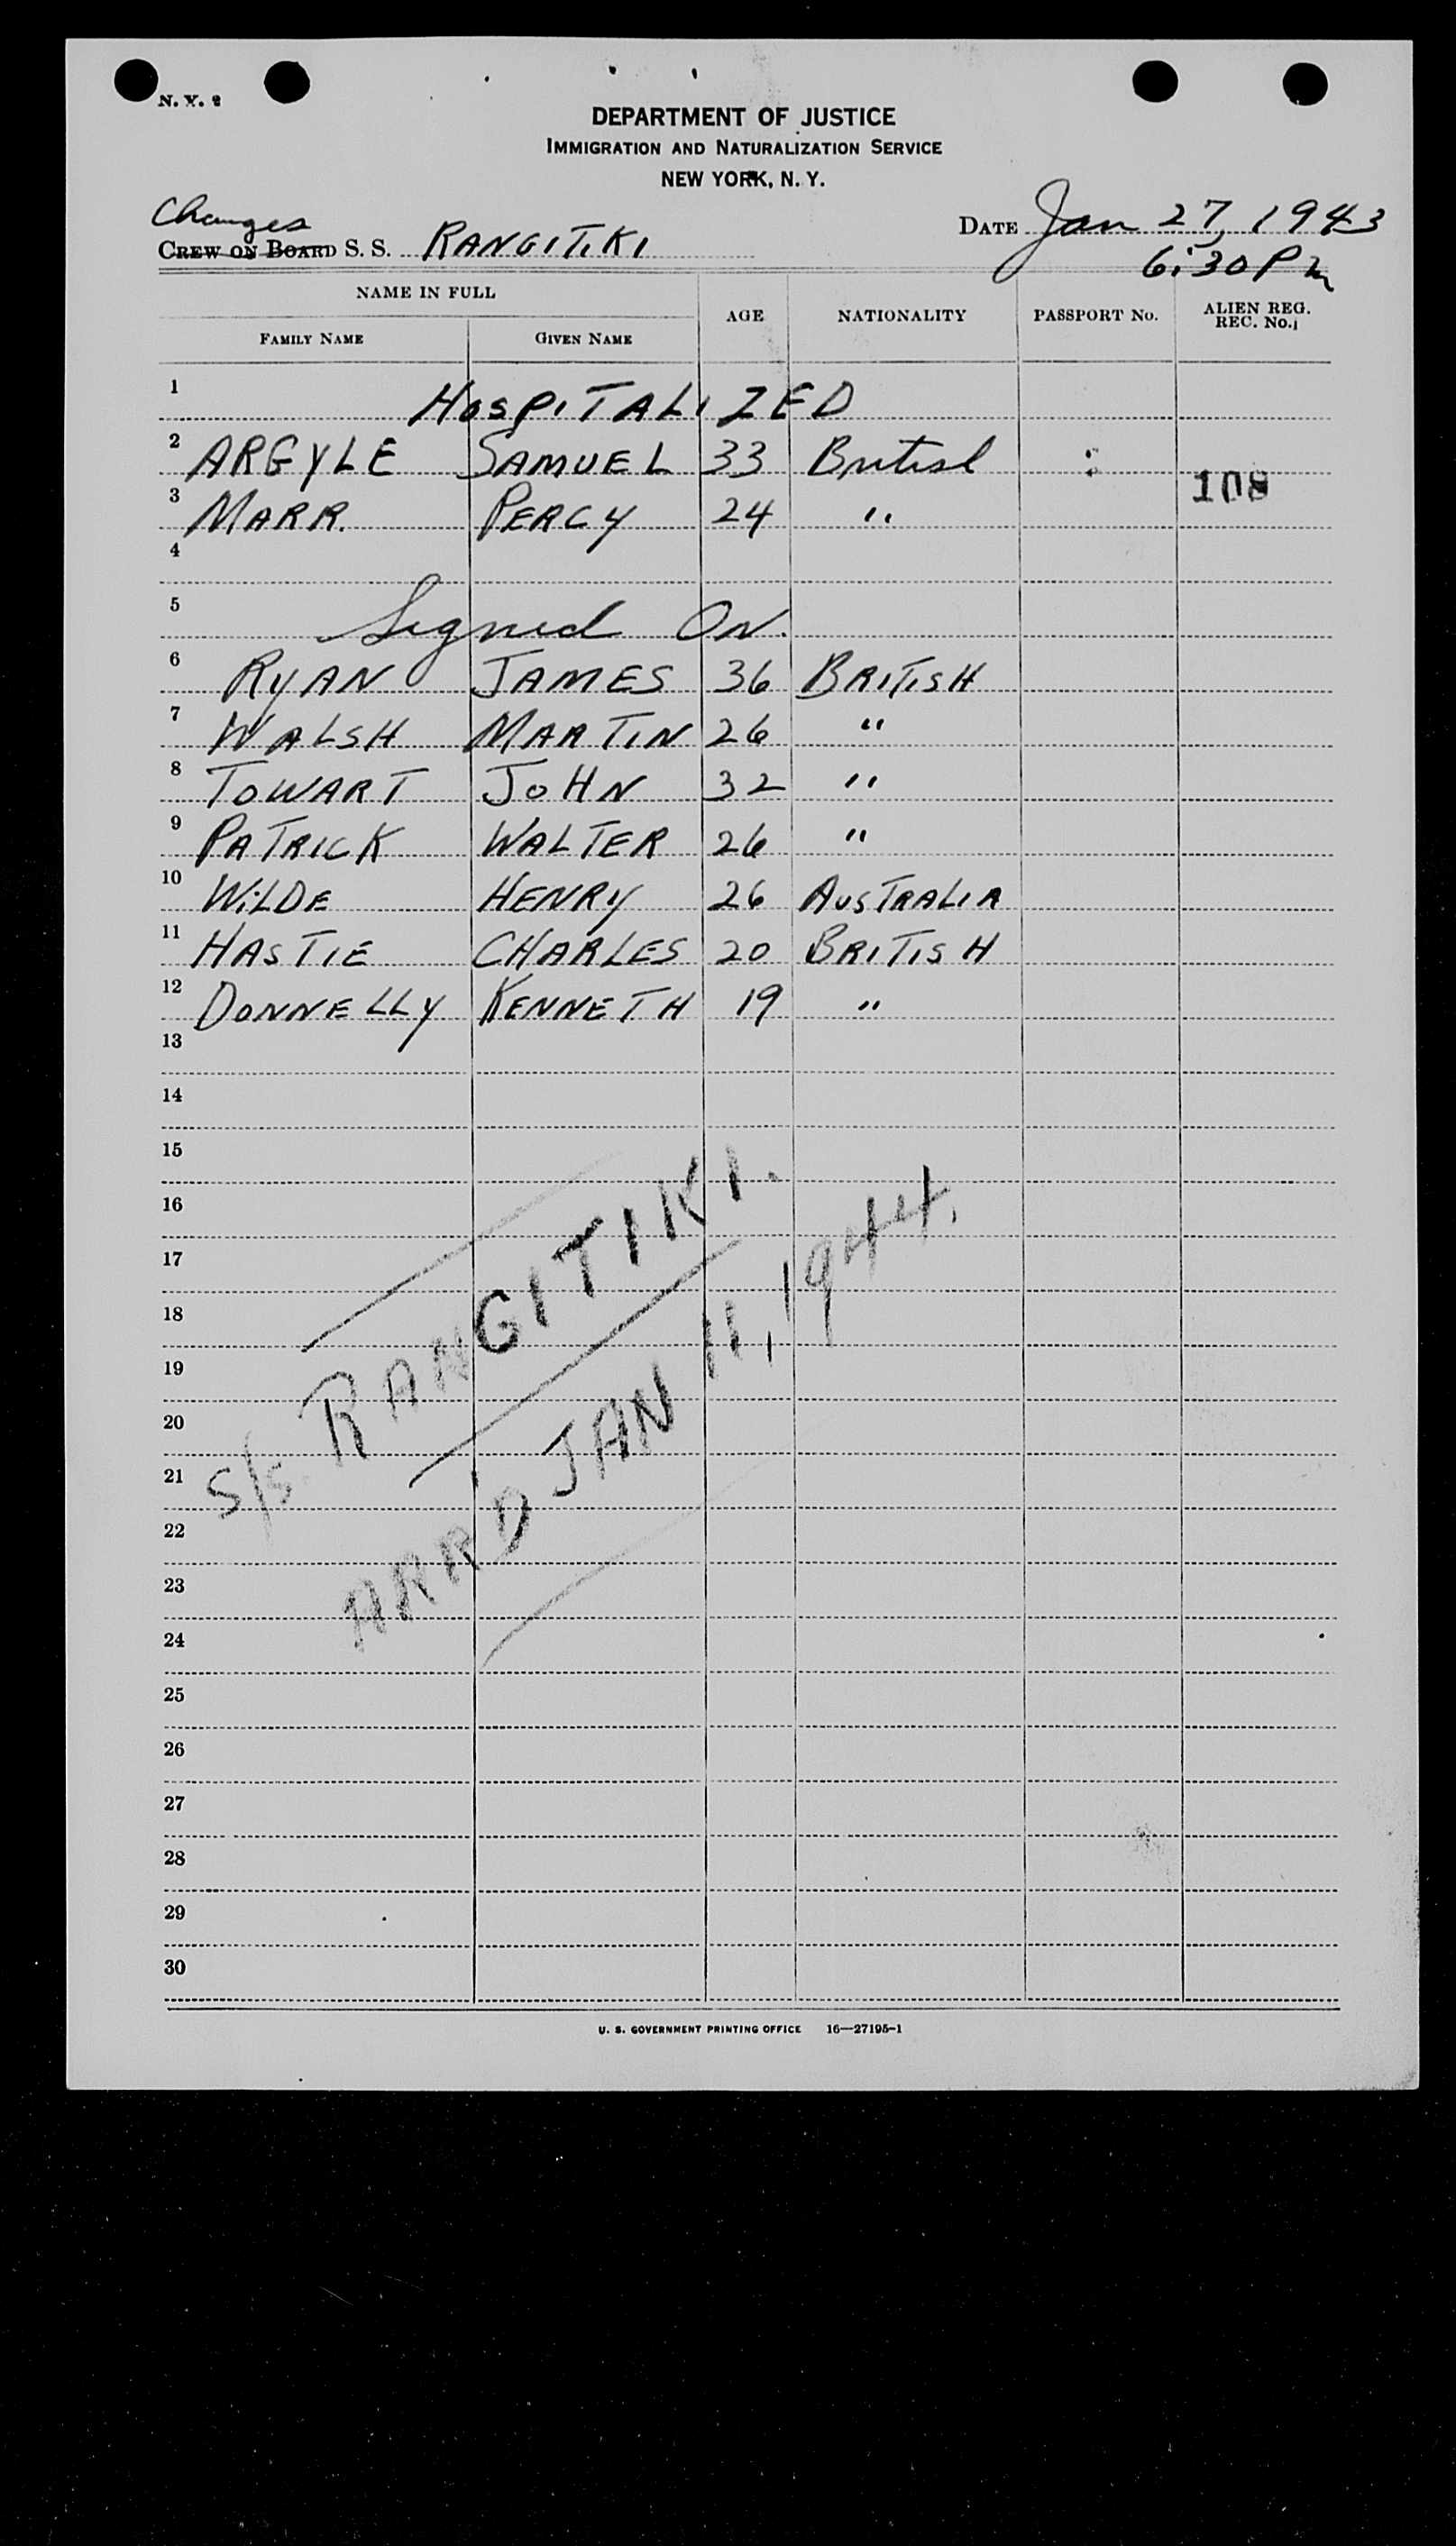 N. Y. 2
DEPARTMENT OF JUSTICE
IMMIGRATION AND NATURALIZATION SERVICE
NEW YORK, N. Y.
Changes
CREW ON BOARD S. S. RANGITIKI DATE Jan 27, 1943
6:30 Pm
NAME IN FULL
AGE NATIONALITY PASSPORT No. ALIEN REG.
REC. No.
FAMILY NAME GIVEN NAME
1 HOSPITALIZED
2 ARGYLE SAMUEL 33 British
108
3 MARR. PERCY 24 "
4
5 Signed On.
6 RYAN JAMES 36 BRITISH
7 WALSH MARTIN 26 "
8 TOWART JOHN 32 "
9 PATRICK WALTER 26 "
10 WILDE HENRY 26 AUSTRALIA
11 HASTIE CHARLES 20 BRITISH
12 DONNELLY KENNETH 19 "
13
14
15
16
17
18
19
20
21
22
23
24
25
26
27
28
29
30
S/S RANGITIKI.
ARR'D JAN 11, 1944.
U. S. GOVERNMENT PRINTING OFFICE 16—27195-1